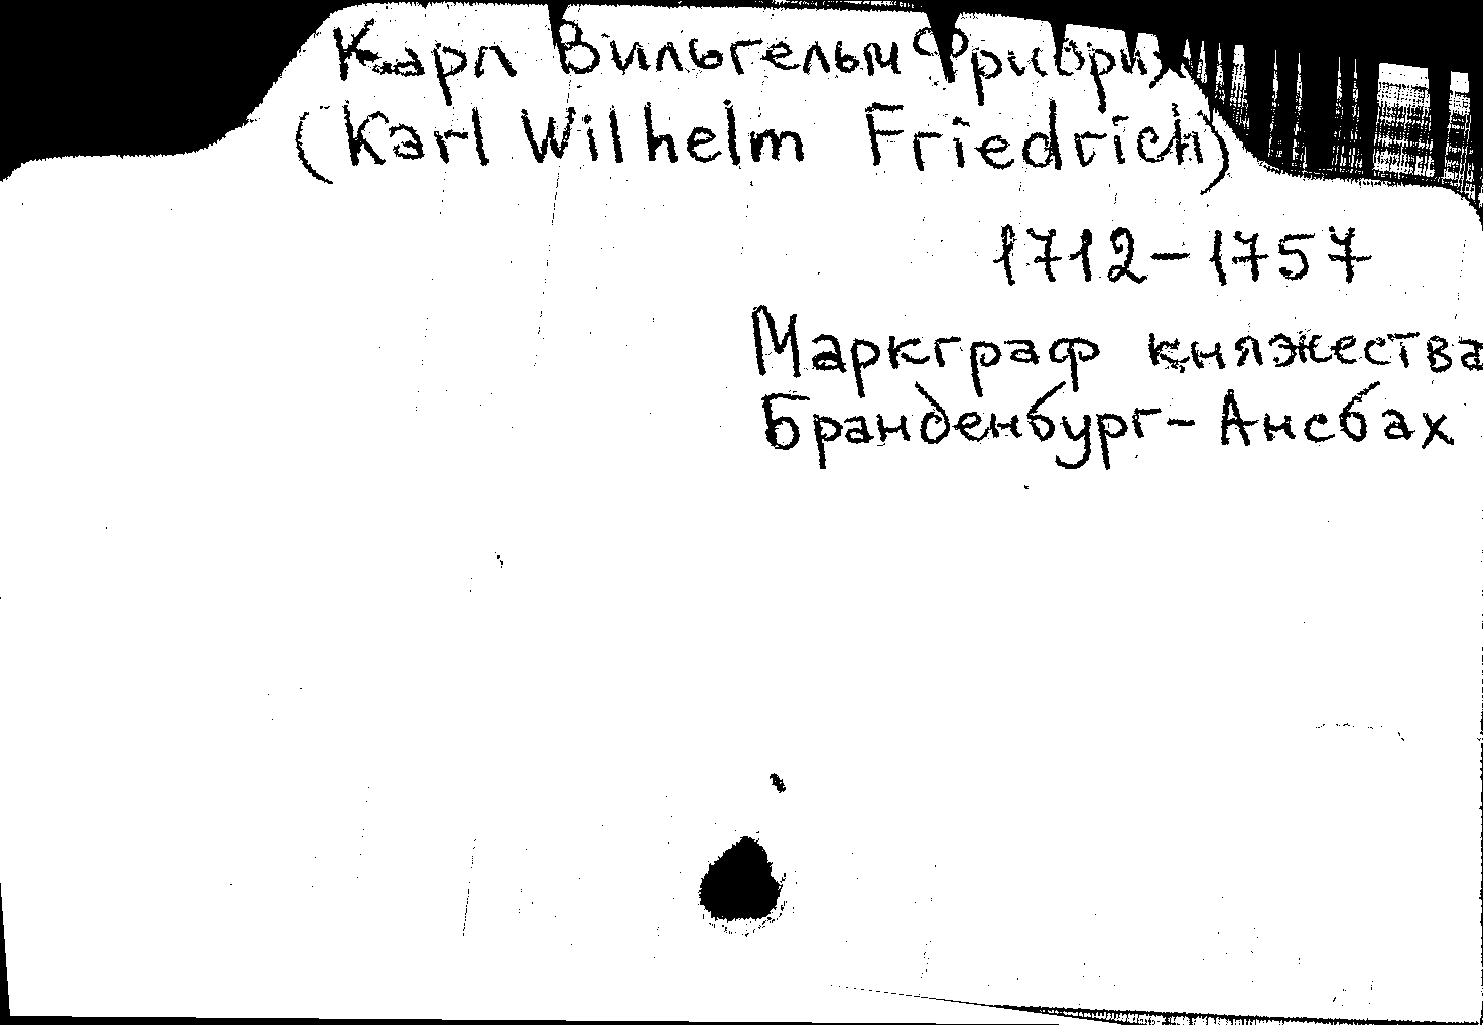 Карл Вильгельм Фридрих
(Karl Wilhelm Friedrich)
1712-1757
Маркграф княжества
Бранденбург-Ансбах